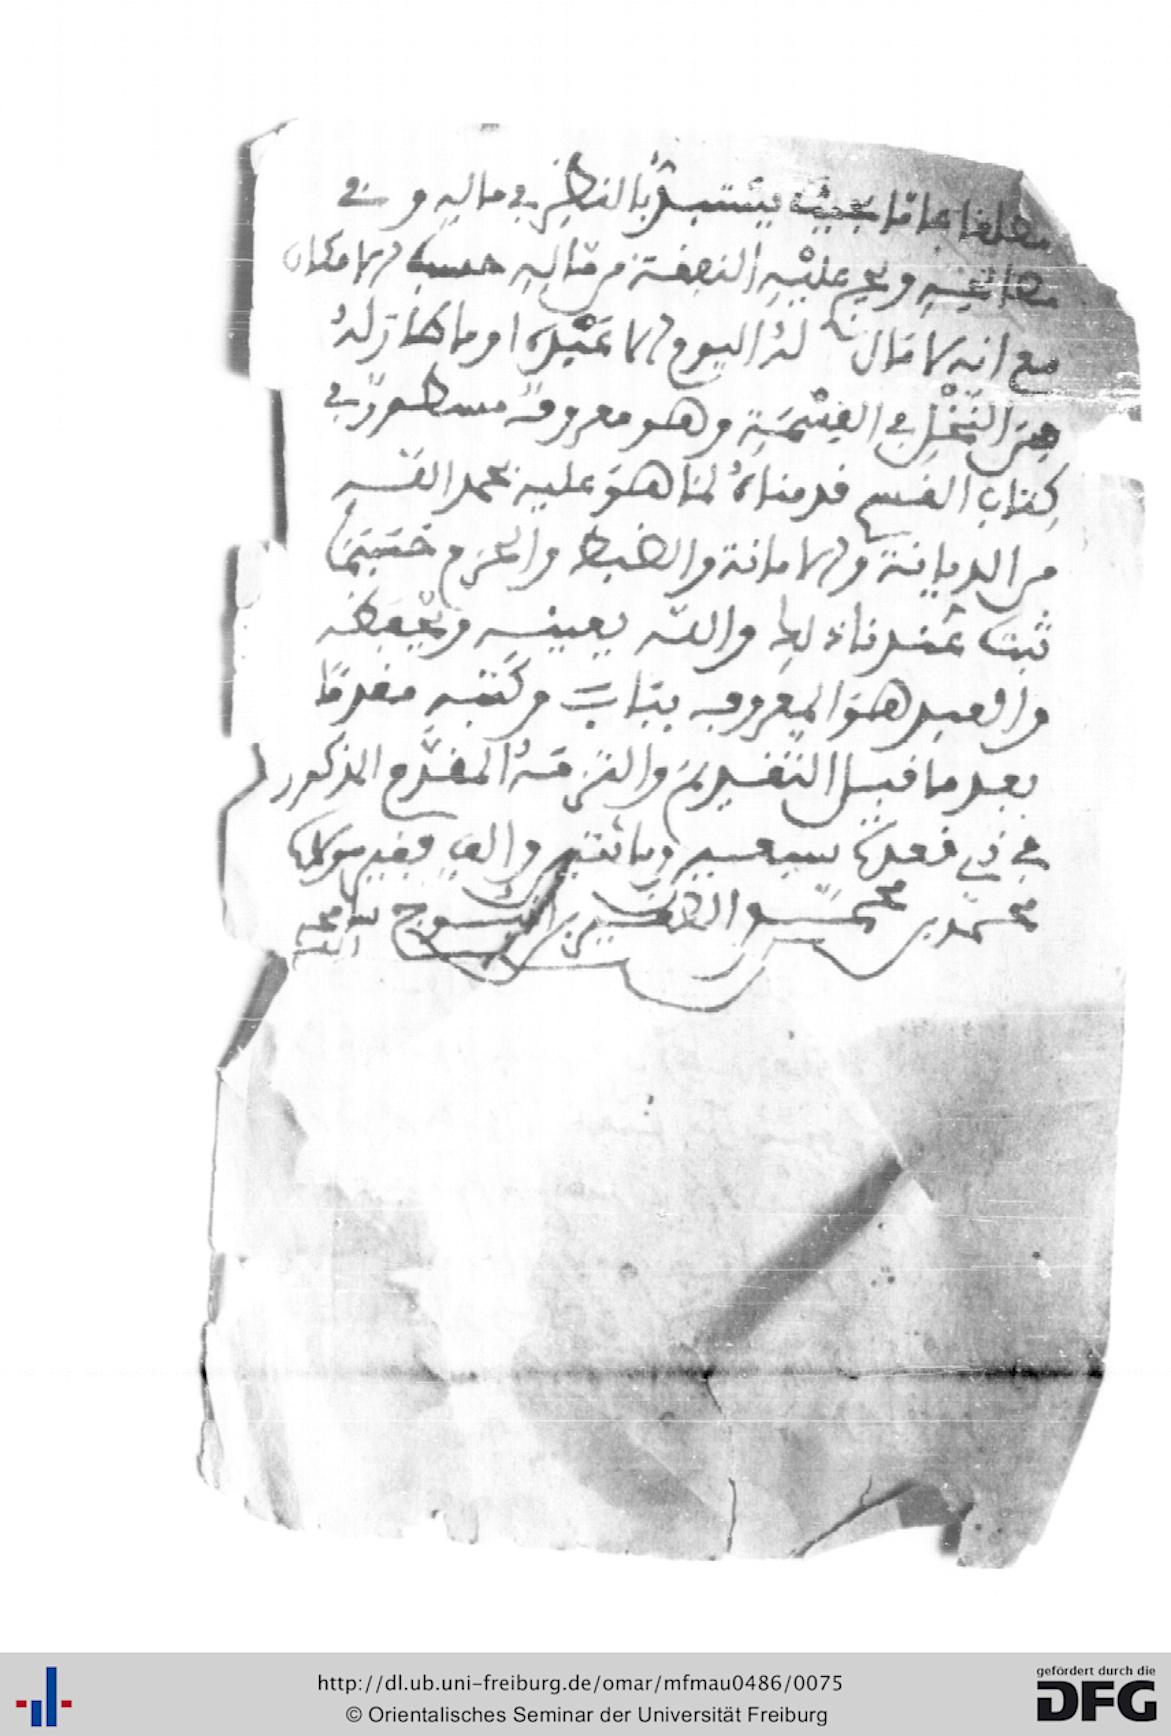 مطلقا عاما بحيث يستبد بالنظر في ماله وفي
مصالحه ويجري عليه النفقة من ماله حسب الامكان
مع انه لا مال له اليوم الا عبيده او ما كان له
من النخل في القسمة وهو معروف مسطور في
كتاب القسم قدمناه لما هو عليه بحمد الله
من الديانة والامانة والضبط والحزم حسبما
ثبت عندنا والله يعينه ويحفظه
والعبد هو المعروف وكتبه مقدما
بعد ما قبل التقديم والتزمه المقدم المذكور
في ذي قعدة سبعين ومائتين والف فقير مولاه
محمد بن محمد
http://dl.ub.uni-freiburg.de/omar/mfmau0486/0075
© Orientalisches Seminar der Universität Freiburg
gefördert durch die
DFG